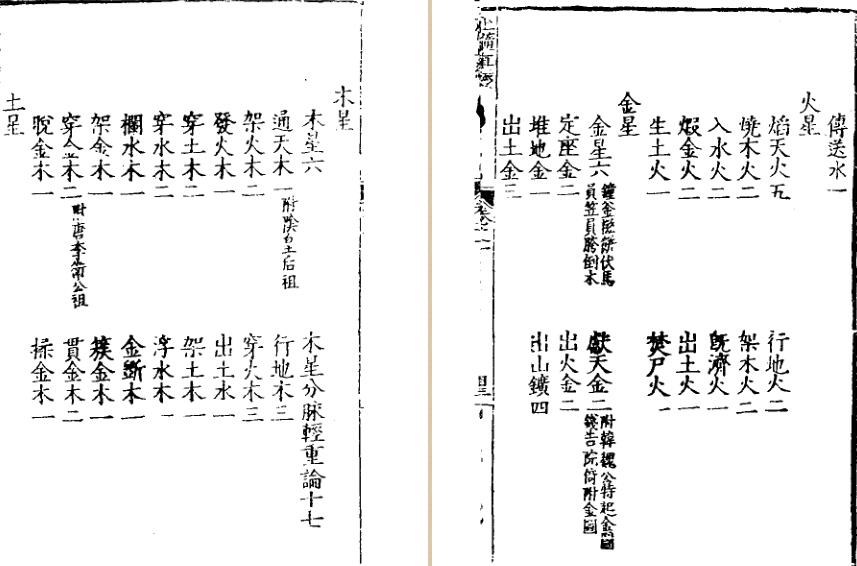 傳送水一
火星
焰天火五 行地火二
燒木火二 架木火二
入水火二 既濟火一
煆金火二 出土火一
生土火一 焚尸火一
金星
金星六 鐘釜 餅伏馬 員笠員 倒木 獻天金二 附韓魏公特起金圖 錢吉院倚附金圖
定座金二 出火金二
堆地金一 出山鑛四
出土金三
木星
木星六 木星分脉輕重論十七
通天木一 附 土后祖 行地木三
架火木二 穿火木三
發火木一 出土水一
穿土木二 架土木一
穿水木二 浮水木一
欄水木一 金斷木一
架金木一 簇金木一
穿金木二 附 唐李 公祖 貫金木二
脫金木一 金木一
土星